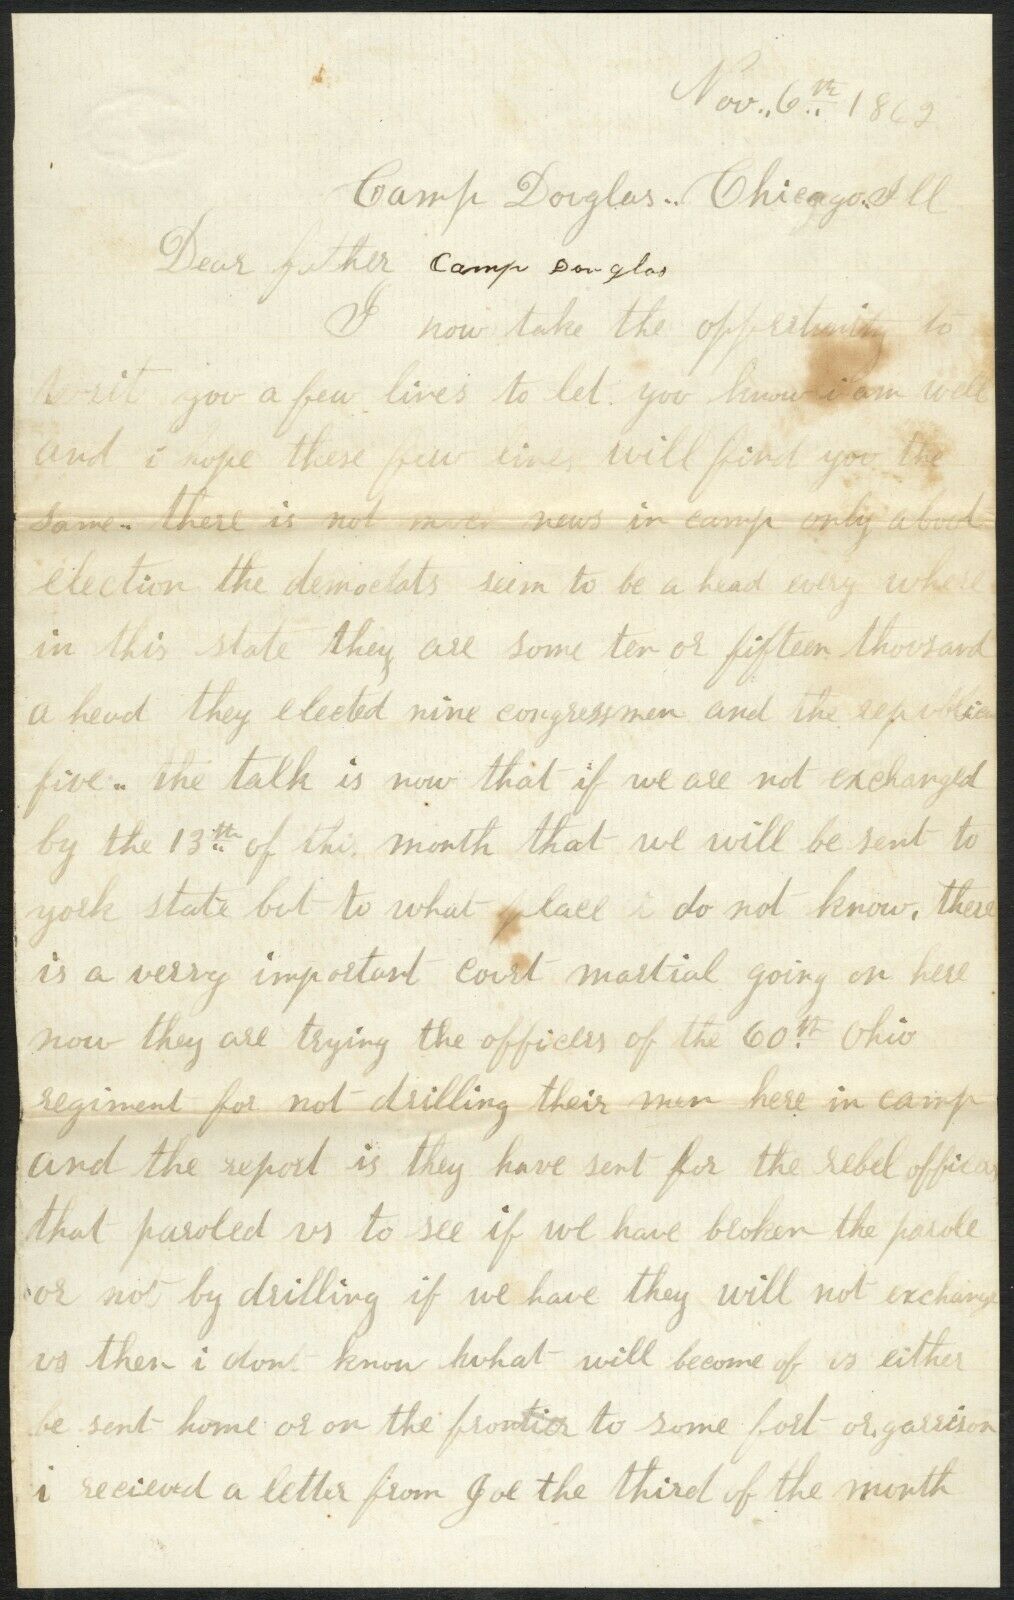 Nov., 6th 1862
Camp Douglas.. Chicago. Ill
Dear father Camp Douglas
I now take the oppertunity to
writ you a few lines to let you know i am well
and i hope these few lines will find you the
same.. there is not news in camp only about
election the democrats seem to be a head every where
in this state they are some ten or fifteen thousand
a head they elected nine congressmen and the republican
five.. the talk is now that if we are not exchanged
by the 13th of this month that we will be sent to
york state but to what place i do not know. there
is a verry important court martial going on here
now they are trying the officers of the 60th Ohio
regiment for not drilling their men here in camp
and the report is they have sent for the rebel officers
that paroled us to see if we have broken the parole
or not by drilling if we have they will not exchange
us then i dont know what will become of us either
be sent home or on the frontier to some fort or garrison
i recieved a letter from Joe the third of the month